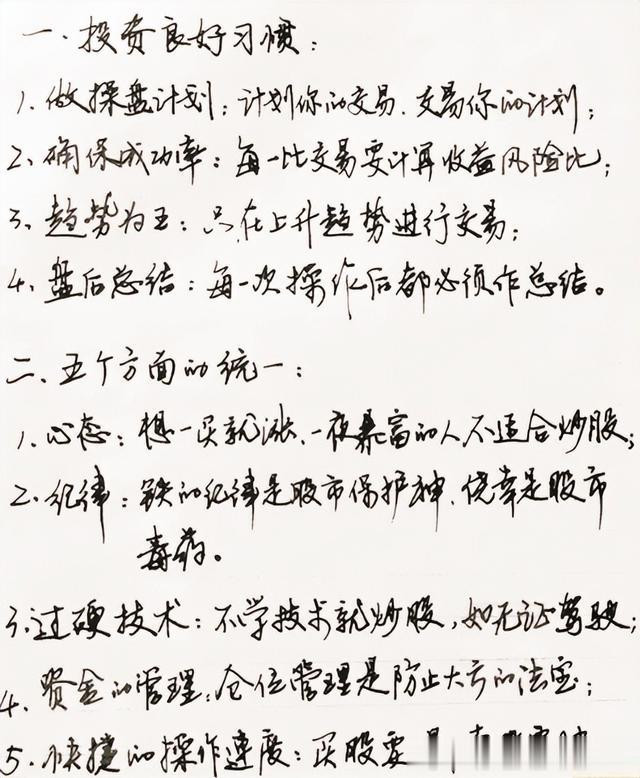 一、投资良好习惯：
1、做操盘计划：计划你的交易、交易你的计划；
2、确保成功率：每一比交易要计算收益风险比；
3、趋势为王：只在上升趋势进行交易；
4、盘后总结：每一次操作后都必须作总结。
二、五个方面的统一：
1、心态：想一买就涨、一夜暴富的人不适合炒股；
2、纪律：铁的纪律是股市保护神、侥幸是股市
毒药。
3、过硬技术：不学技术就炒股，如无证驾驶；
4、资金的管理：仓位管理是防止大亏的法宝；
5、快捷的操作速度：买股要